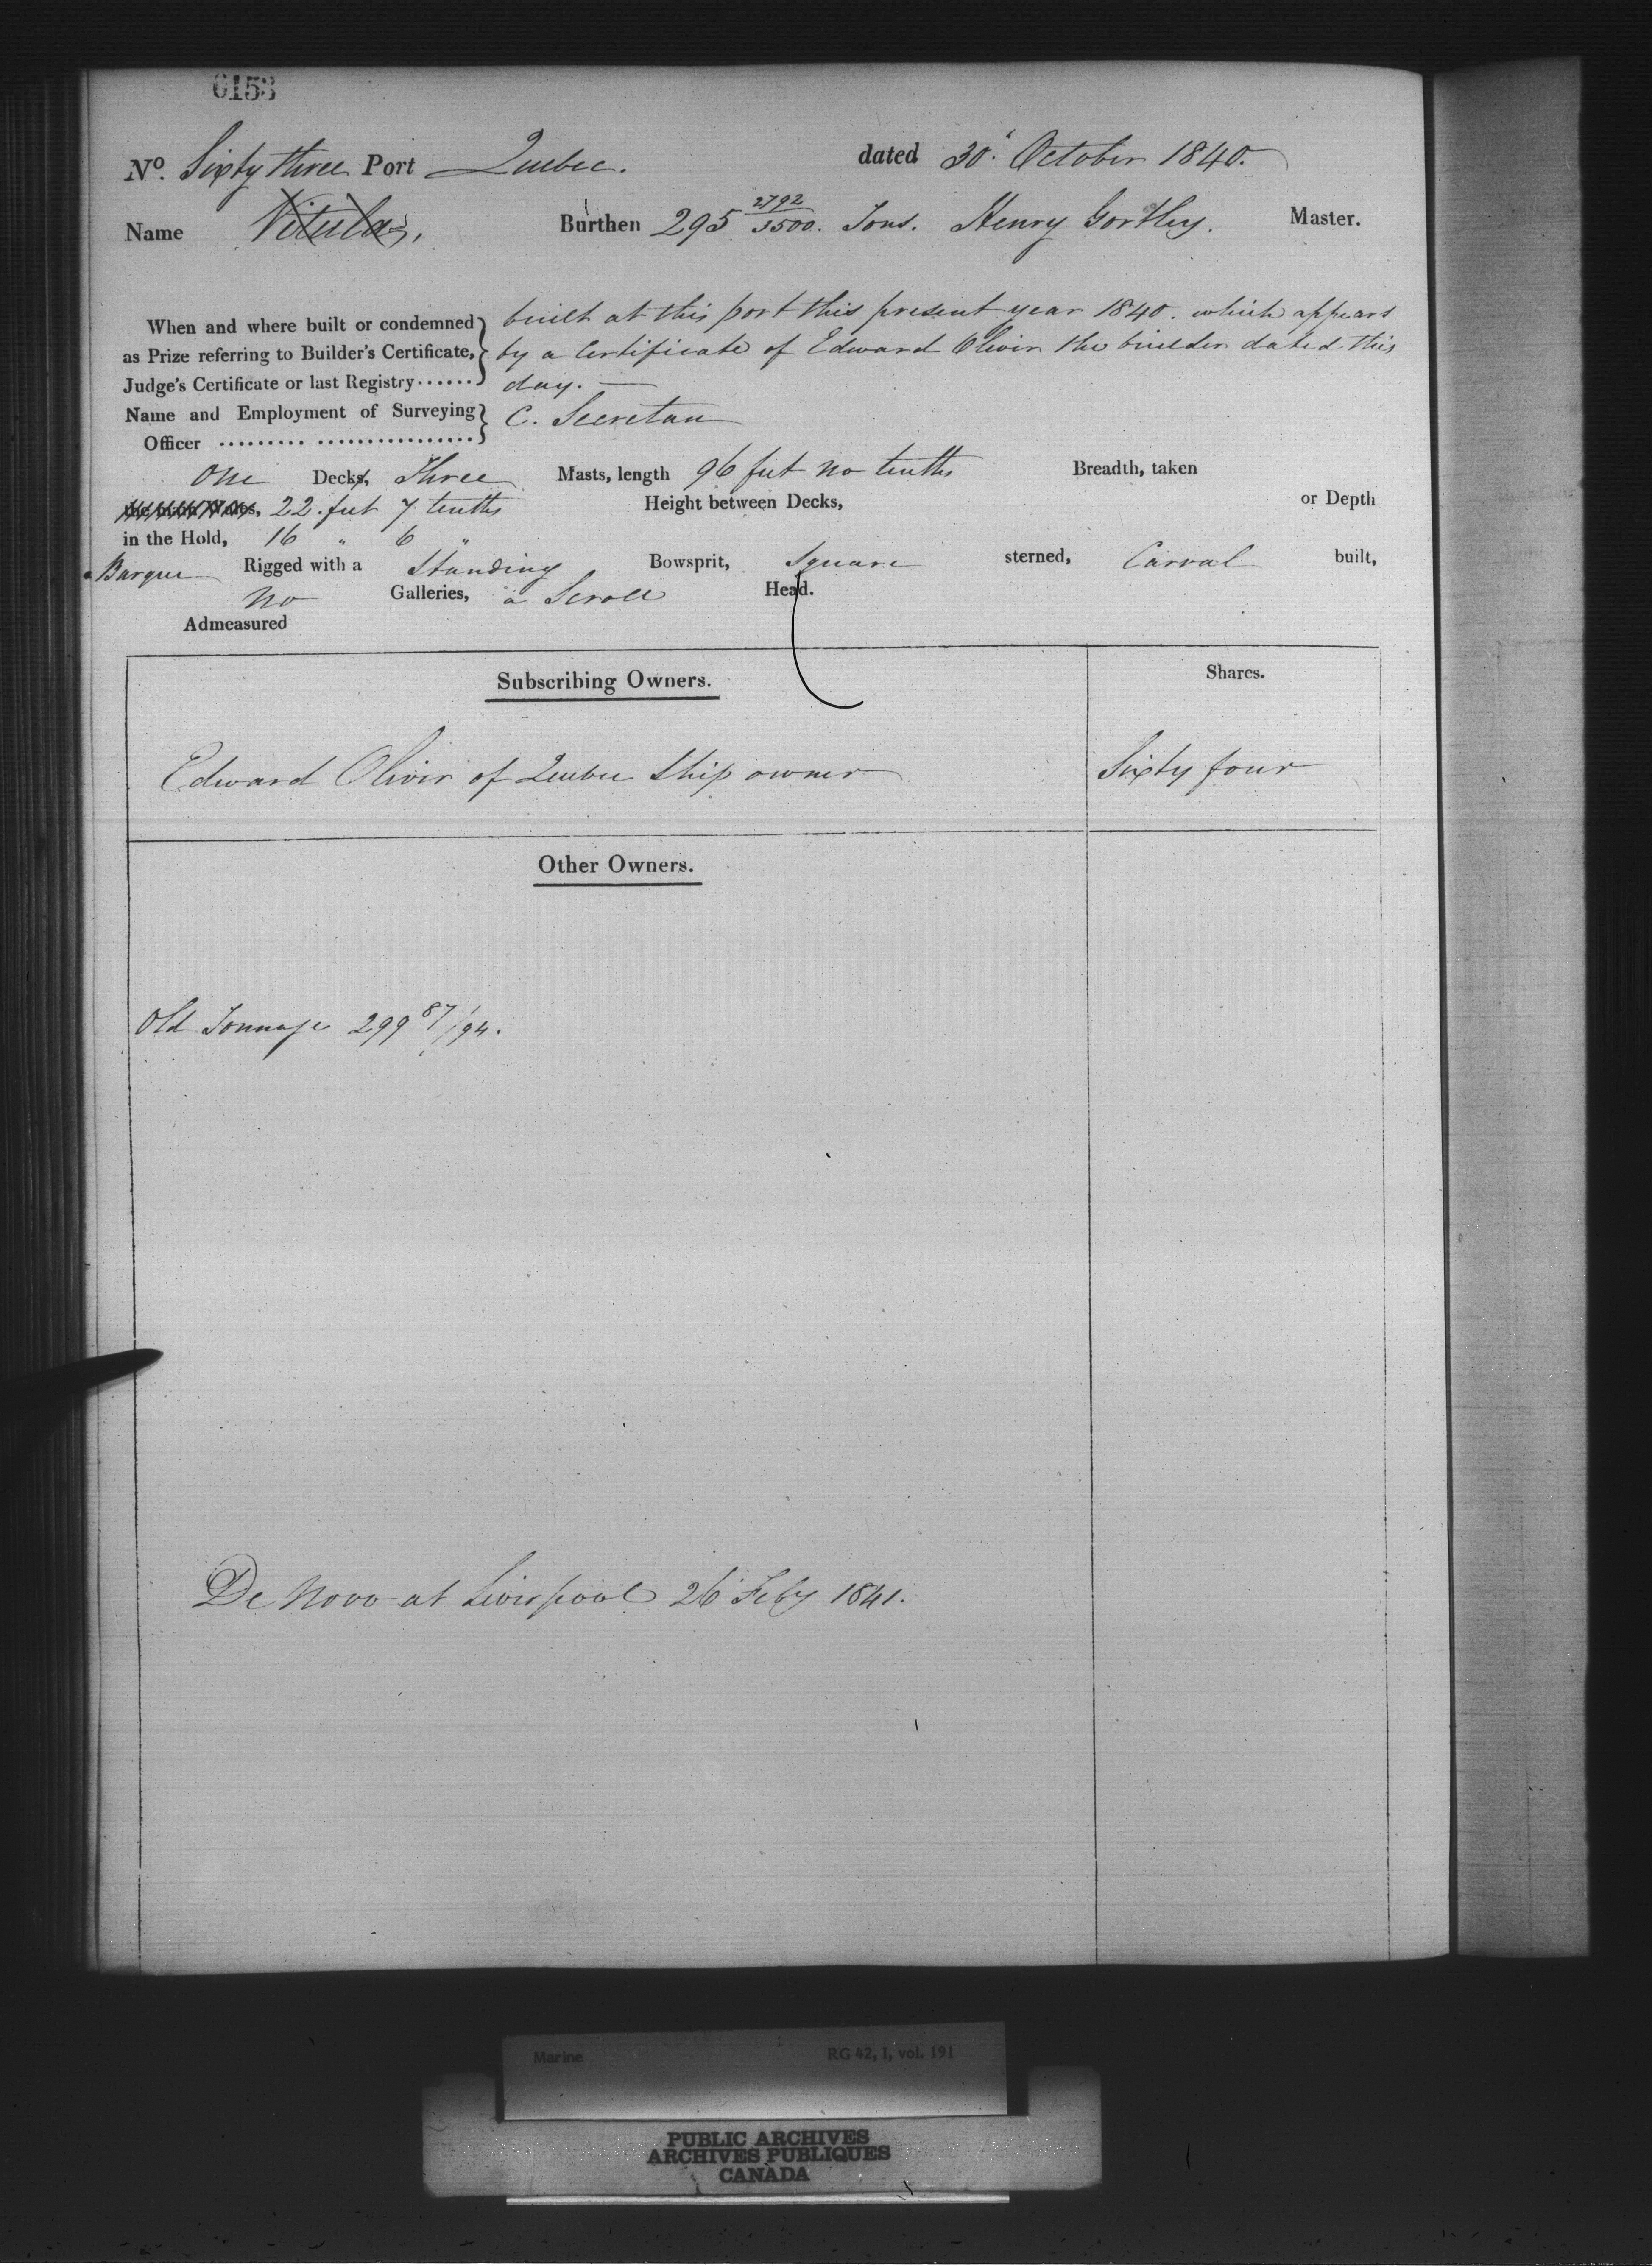 0153
No. Sixty three Port Quebec. dated 30. October 1840.
Name Vitula, Burthen 295 2792/3500. Tons. Henry Gorthy. Master.
When and where built or condemned built at this port this present year 1840. which appears
as Prize referring to Builder's Certificate, by a Certificate of Edward Oliver the builder dated this
Judge's Certificate or last Registry...... day. —
Name and Employment of Surveying C. Secretan
Officer ......... ................
One Decks, Three Masts, length 96 feet no tenths Breadth, taken
22. feet 7 tenths Height between Decks, or Depth
in the Hold, 16 " 6 "
Barque Rigged with a Standing Bowsprit, Square sterned, Carval built,
No Galleries, a Scroll Head.
Admeasured
Subscribing Owners. Shares.
Edward Oliver of Quebec Ship owner Sixty four
Other Owners.
Old Tonnage 299 87/94.
De Novo at Liverpool 26 Feby 1841.
Marine RG 42, I, vol. 191
PUBLIC ARCHIVES
ARCHIVES PUBLIQUES
CANADA